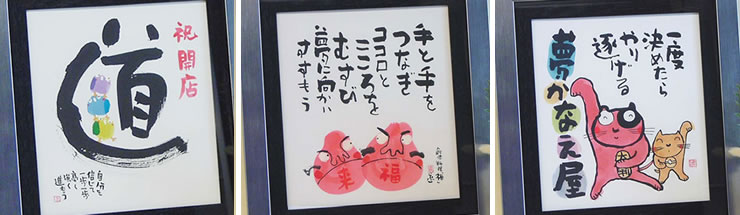 祝開店
道
自分を
信じて
一歩一歩
進もう
手と手を
つなぎ
ココロと
こころを
むすび
夢に向かい
すすもう
来
福
一度
決めたら
やり
遂げる
夢かなえ屋